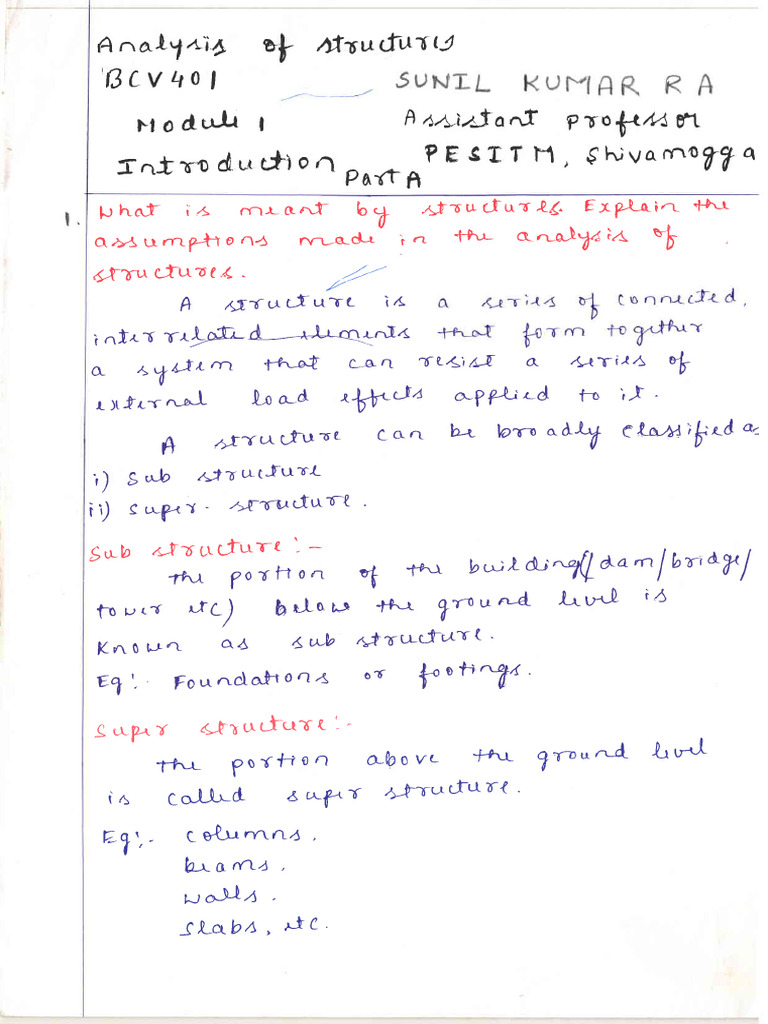 Analysis of structures
BCV401
SUNIL KUMAR R A
Module 1
Assistant professor
Introduction
PESITM, Shivamogga
Part A
1. What is meant by structures. Explain the
assumptions made in the analysis of
structures.
A structure is a series of connected,
interrelated elements that form together
a system that can resist a series of
external load effects applied to it.
A structure can be broadly classified as
i) Sub structure
ii) Super- structure.
Sub structure:-
The portion of the building/dam/bridge/
tower etc) below the ground level is
known as sub structure.
Eg:- Foundations or footings.
Super structure:-
The portion above the ground level
is called super structure.
Eg:- columns.
beams.
walls.
Slabs, etc.